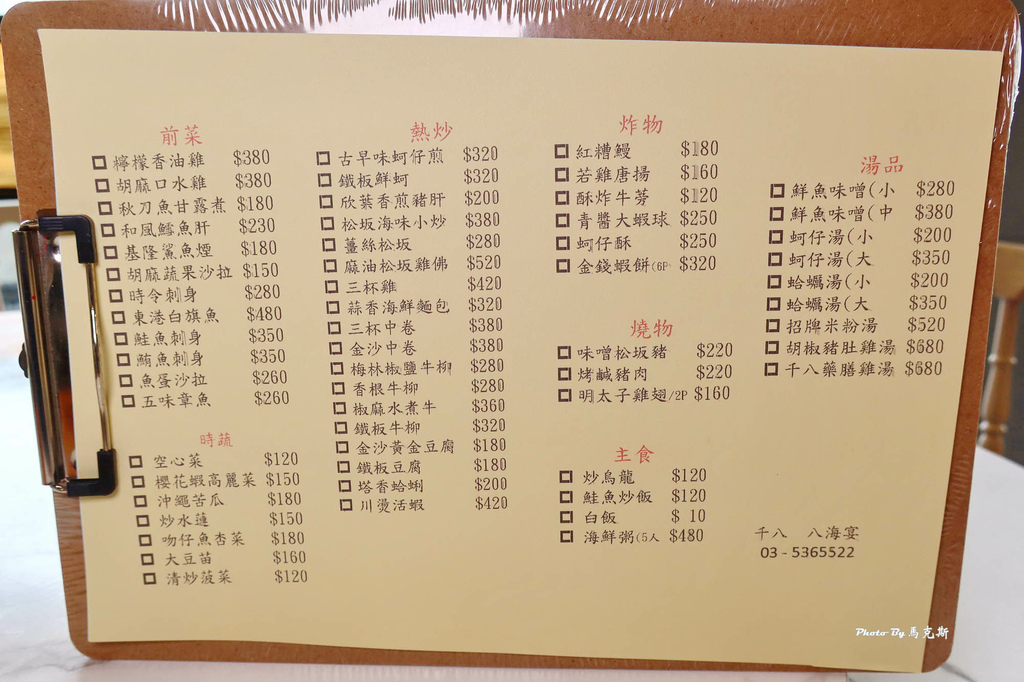 前菜
檸檬香油雞 $380
胡麻口水雞 $380
秋刀魚甘露煮 $180
和風鱈魚肝 $230
基隆鯊魚煙 $180
胡麻蔬果沙拉 $150
時令刺身 $280
東港白旗魚 $480
鮭魚刺身 $350
鮪魚刺身 $350
魚蛋沙拉 $260
五味章魚 $260
時蔬
空心菜 $120
櫻花蝦高麗菜 $150
沖繩苦瓜 $180
炒水蓮 $150
吻仔魚杏菜 $180
大豆苗 $160
清炒菠菜 $120
熱炒
古早味蚵仔煎 $320
鐵板鮮蚵 $320
欣葉香煎豬肝 $200
松坂海味小炒 $380
薑絲松坂 $280
麻油松坂雞佛 $520
三杯雞 $420
蒜香海鮮麵包 $320
三杯中卷 $380
金沙中卷 $380
梅林椒鹽牛柳 $280
香根牛柳 $280
椒麻水煮牛 $360
鐵板牛柳 $320
金沙黃金豆腐 $180
鐵板豆腐 $180
塔香蛤蜊 $200
川燙活蝦 $420
炸物
紅糟鰻 $180
若雞唐揚 $160
酥炸牛蒡 $120
青醬大蝦球 $250
蚵仔酥 $250
金錢蝦餅(6P $320
燒物
味噌松坂豬 $220
烤鹹豬肉 $220
明太子雞翅/2P $160
主食
炒烏龍 $120
鮭魚炒飯 $120
白飯 $ 10
海鮮粥(5人 $480
湯品
鮮魚味噌(小 $280
鮮魚味噌(中 $380
蚵仔湯(小 $200
蚵仔湯(大 $350
蛤蠣湯(小 $200
蛤蠣湯(大 $350
招牌米粉湯 $520
胡椒豬肚雞湯 $680
千八藥膳雞湯 $680
千八 八海宴
03-5365522
Photo By 馬克斯